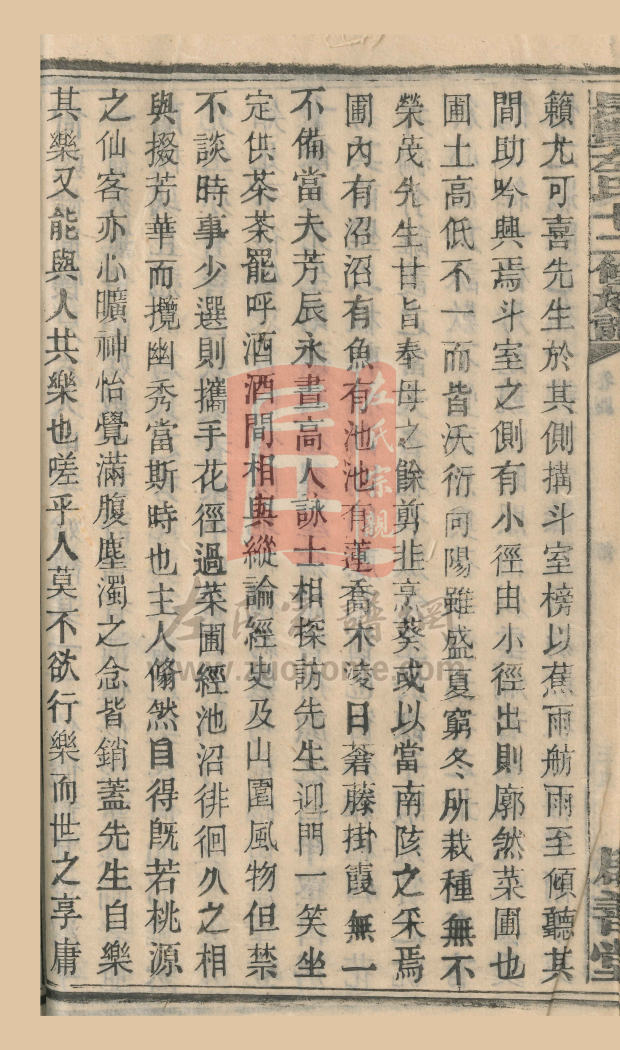 籟尤可喜先生於其側搆斗室榜以蕉雨舫雨至傾聽其
間助吟興焉斗室之側有小徑由小徑出則廓然菜圃也
圃土高低不一而皆沃衍向陽雖盛夏窮冬所栽種無不
榮茂先生甘旨奉母之餘剪韭烹葵或以當南陔之采焉
圃內有沼沼有魚有池池有蓮喬木凌日蒼藤掛霞無一
不備當夫芳辰永晝高人詠士相探訪先生迎門一笑坐
定供茶茶罷呼酒酒間相與縱論經史及山園風物但禁
不談時事少選則攜手花徑過菜圃經池沼徘徊久之相
與掇芳華而攬幽秀當斯時也主人翛然自得旣若桃源
之仙客亦心曠神怡覺滿腹塵濁之念皆銷蓋先生自樂
其樂又能與人共樂也嗟乎人莫不欲行樂而世之享庸
左氏宗親
www.zuohome.com